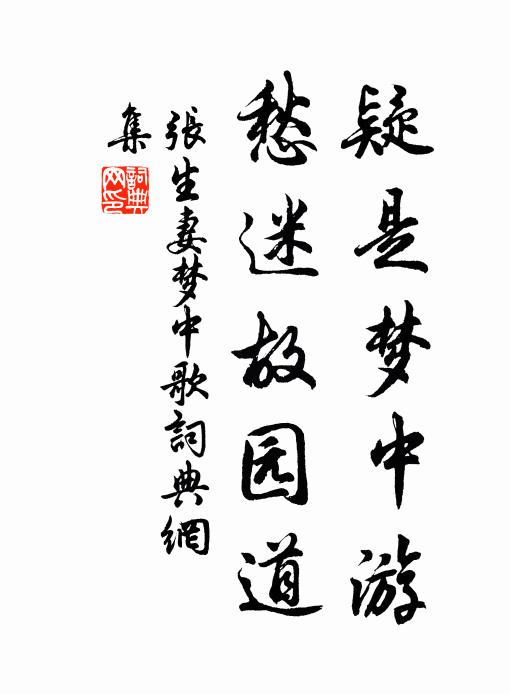 疑是梦中游
愁迷故园道
張生妻梦中歌詞典網
集
詞典
网印